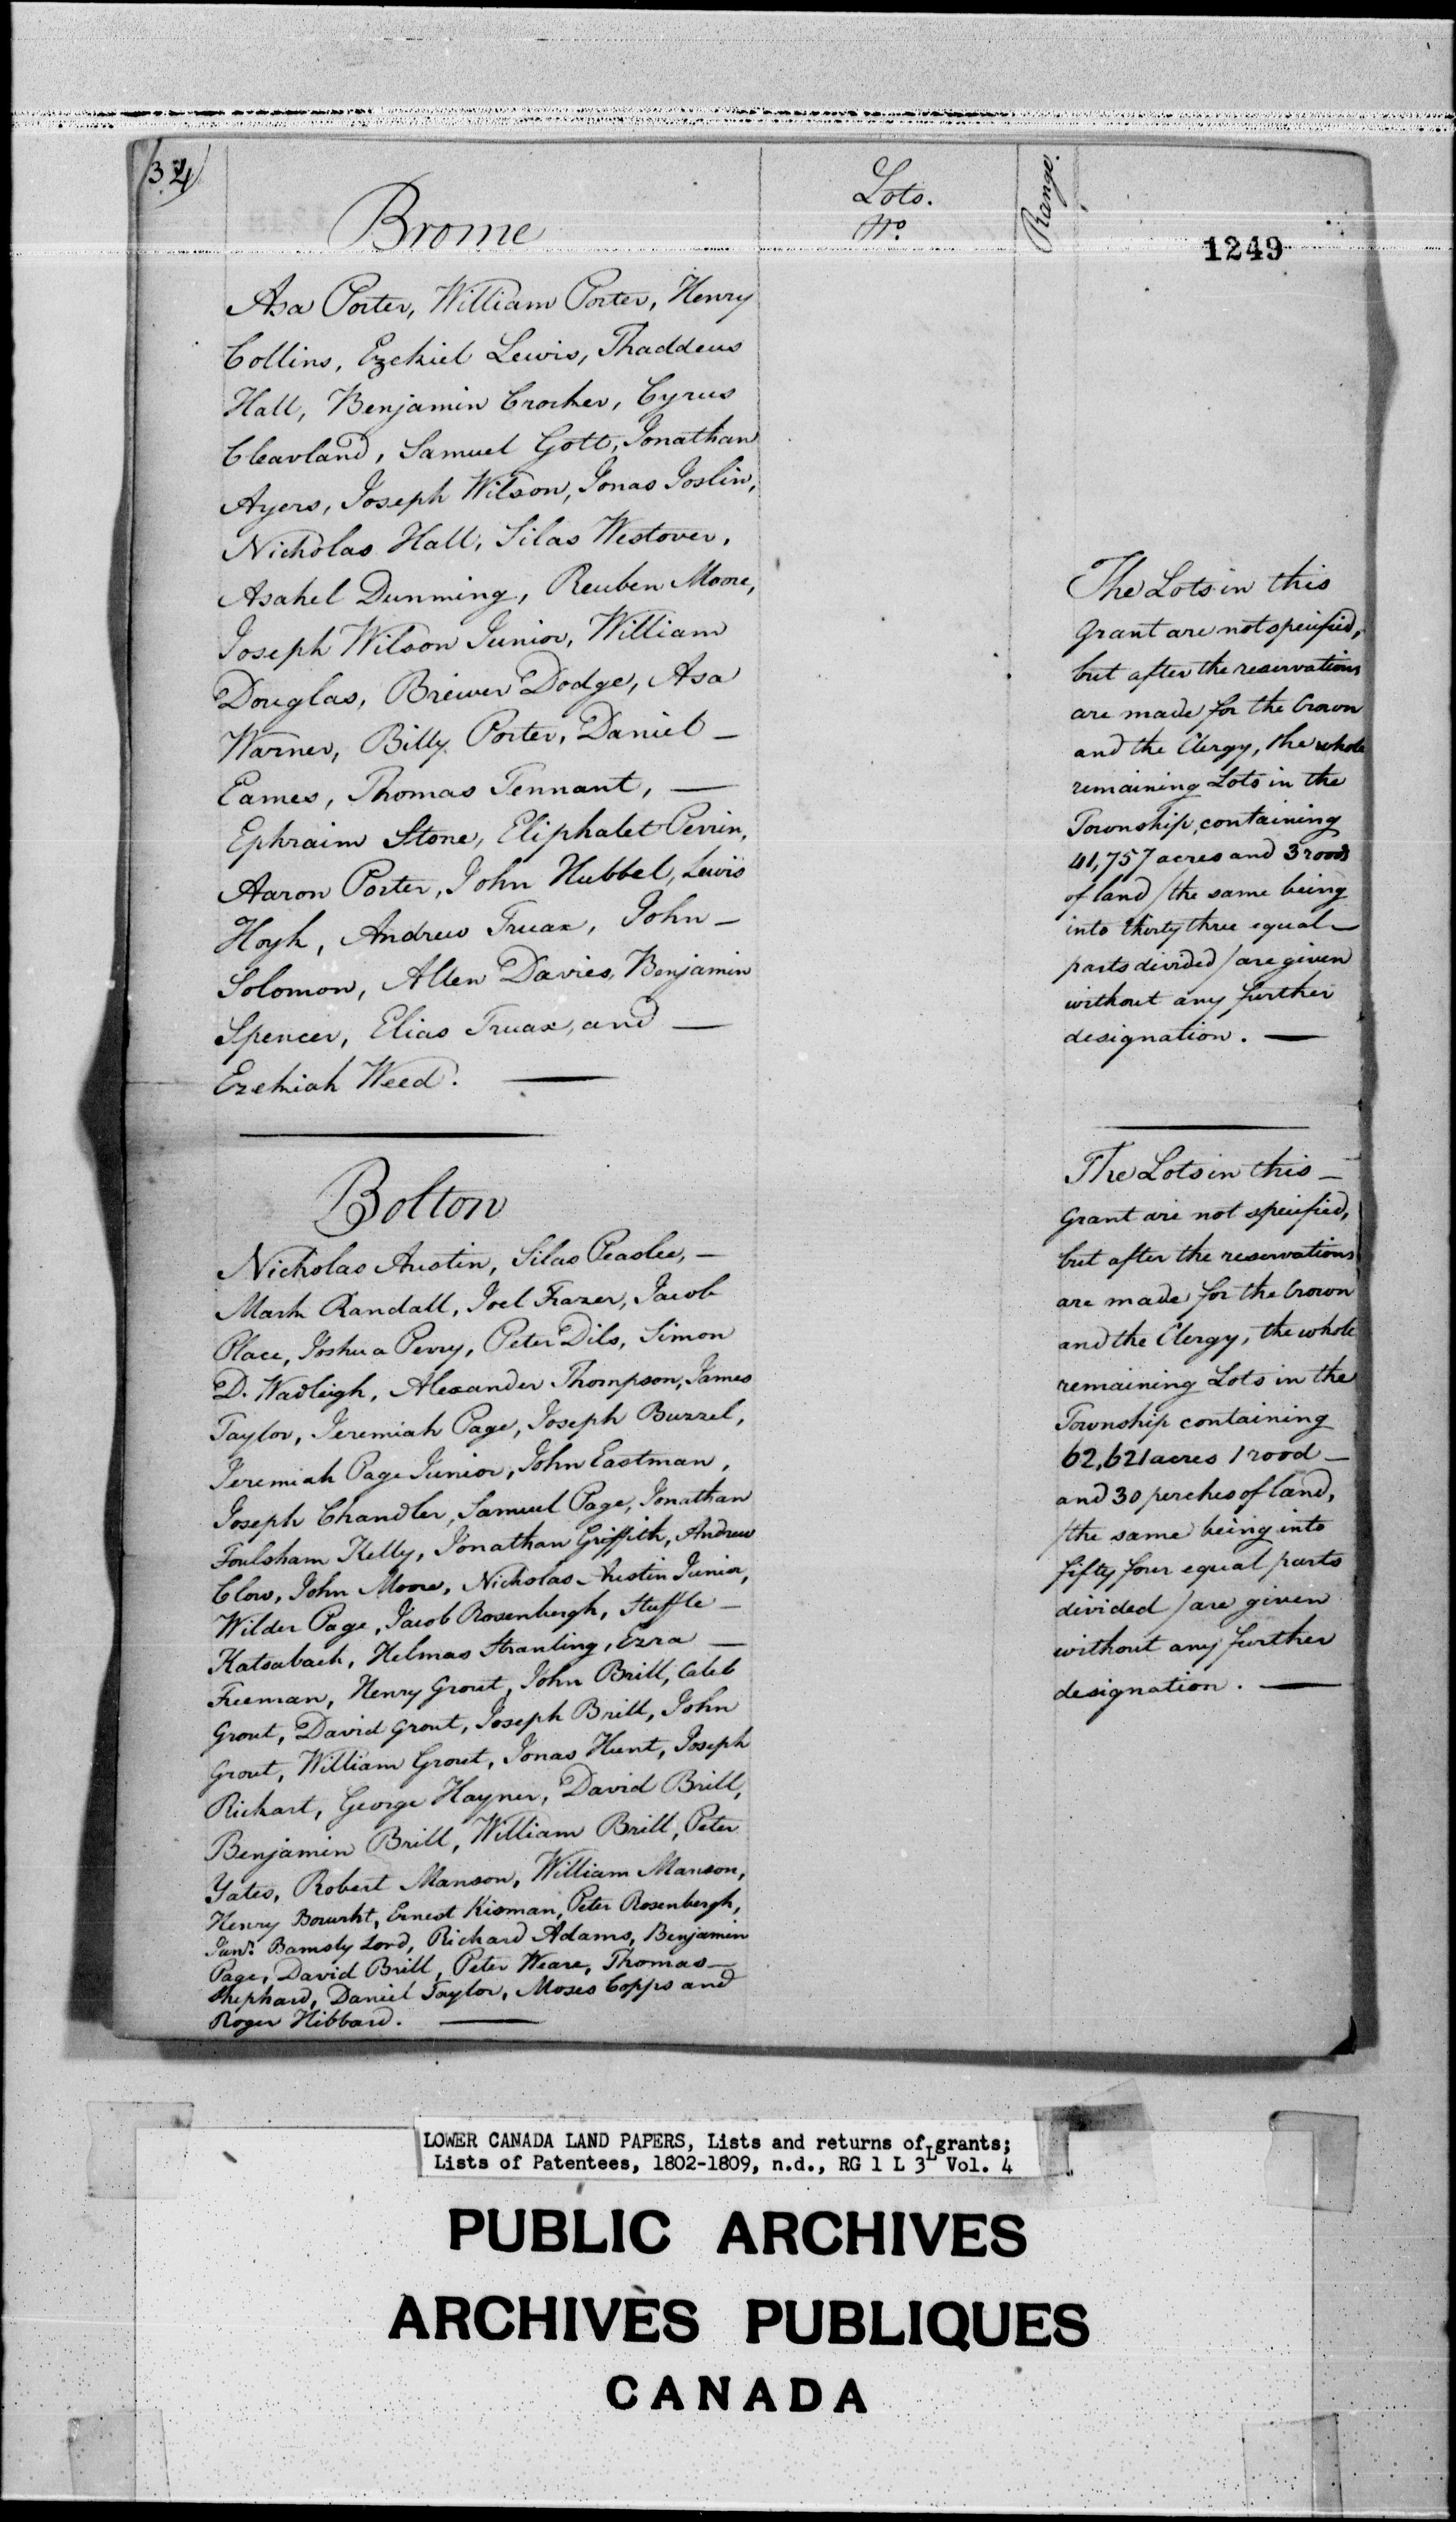 34
Brome
Lots.
No.
Range.
1249
Asa Porter, William Porter, Henry
Collins, Ezekiel Lewis, Thaddeus
Hall, Benjamin Crocker, Cyrus
Cleavland, Samuel Gott, Jonathan
Ayers, Joseph Wilson, Jonas Joslin,
Nicholas Hall, Silas Westover,
Asahel Dunning, Reuben Moore,
Joseph Wilson Junior, William
Douglas, Brewer Dodge, Asa
Warner, Billy Porter, Daniel —
Eames, Thomas Tennant, —
Ephraim Stone, Eliphalet Perrin,
Aaron Porter, John Hubbel, Lewis
Hoyh, Andrew Truax, John —
Solomon, Allen Davies, Benjamin
Spencer, Elias Truax, and —
Ezekiah Weed. —
The Lots in this
Grant are not specified,
but after the reservations
are made for the Crown
and the Clergy, the whole
remaining Lots in the
Township, containing
41,757 acres and 3 roods
of land /the same being
into thirty three equal —
parts divided/ are given
without any further
designation. —
Bolton
Nicholas Austin, Silas Peaslee, —
Mark Randall, Joel Frazer, Jacob
Place, Joshua Perry, Peter Dils, Simon
D. Wadleigh, Alexander Thompson, James
Taylor, Jeremiah Page, Joseph Buzzel,
Jeremiah Page Junior, John Eastman,
Joseph Chandler, Samuel Page, Jonathan
Foulsham Kelly, Jonathan Griffith, Andrew
Clow, John Moore, Nicholas Austin Junior,
Wilder Page, Jacob Rosenbergh, Stuffle —
Katsabach, Helmas Stranling, Ezra —
Freeman, Henry Grout, John Brill, Caleb
Grout, David Grout, Joseph Brill, John
Grout, William Grout, Jonas Hunt, Joseph
Rickart, George Hayner, David Brill,
Benjamin Brill, William Brill, Peter
Yates, Robert Manson, William Manson,
Henry Bowrkt, Ernest Kisman, Peter Rosenbergh,
Junr. Bamsly Lord, Richard Adams, Benjamin
Page, David Brill, Peter Weare, Thomas —
Shephard, Daniel Taylor, Moses Copps and
Roger Hibbard. —
The Lots in this —
Grant are not specified,
but after the reservations
are made for the Crown
and the Clergy, the whole
remaining Lots in the
Township containing
62,621 acres 1 rood —
and 30 perches of land,
/the same being into
fifty four equal parts
divided/ are given
without any further
designation. —
LOWER CANADA LAND PAPERS, Lists and returns of grants;
Lists of Patentees, 1802-1809, n.d., RG 1 L 3L Vol. 4
PUBLIC ARCHIVES
ARCHIVES PUBLIQUES
CANADA